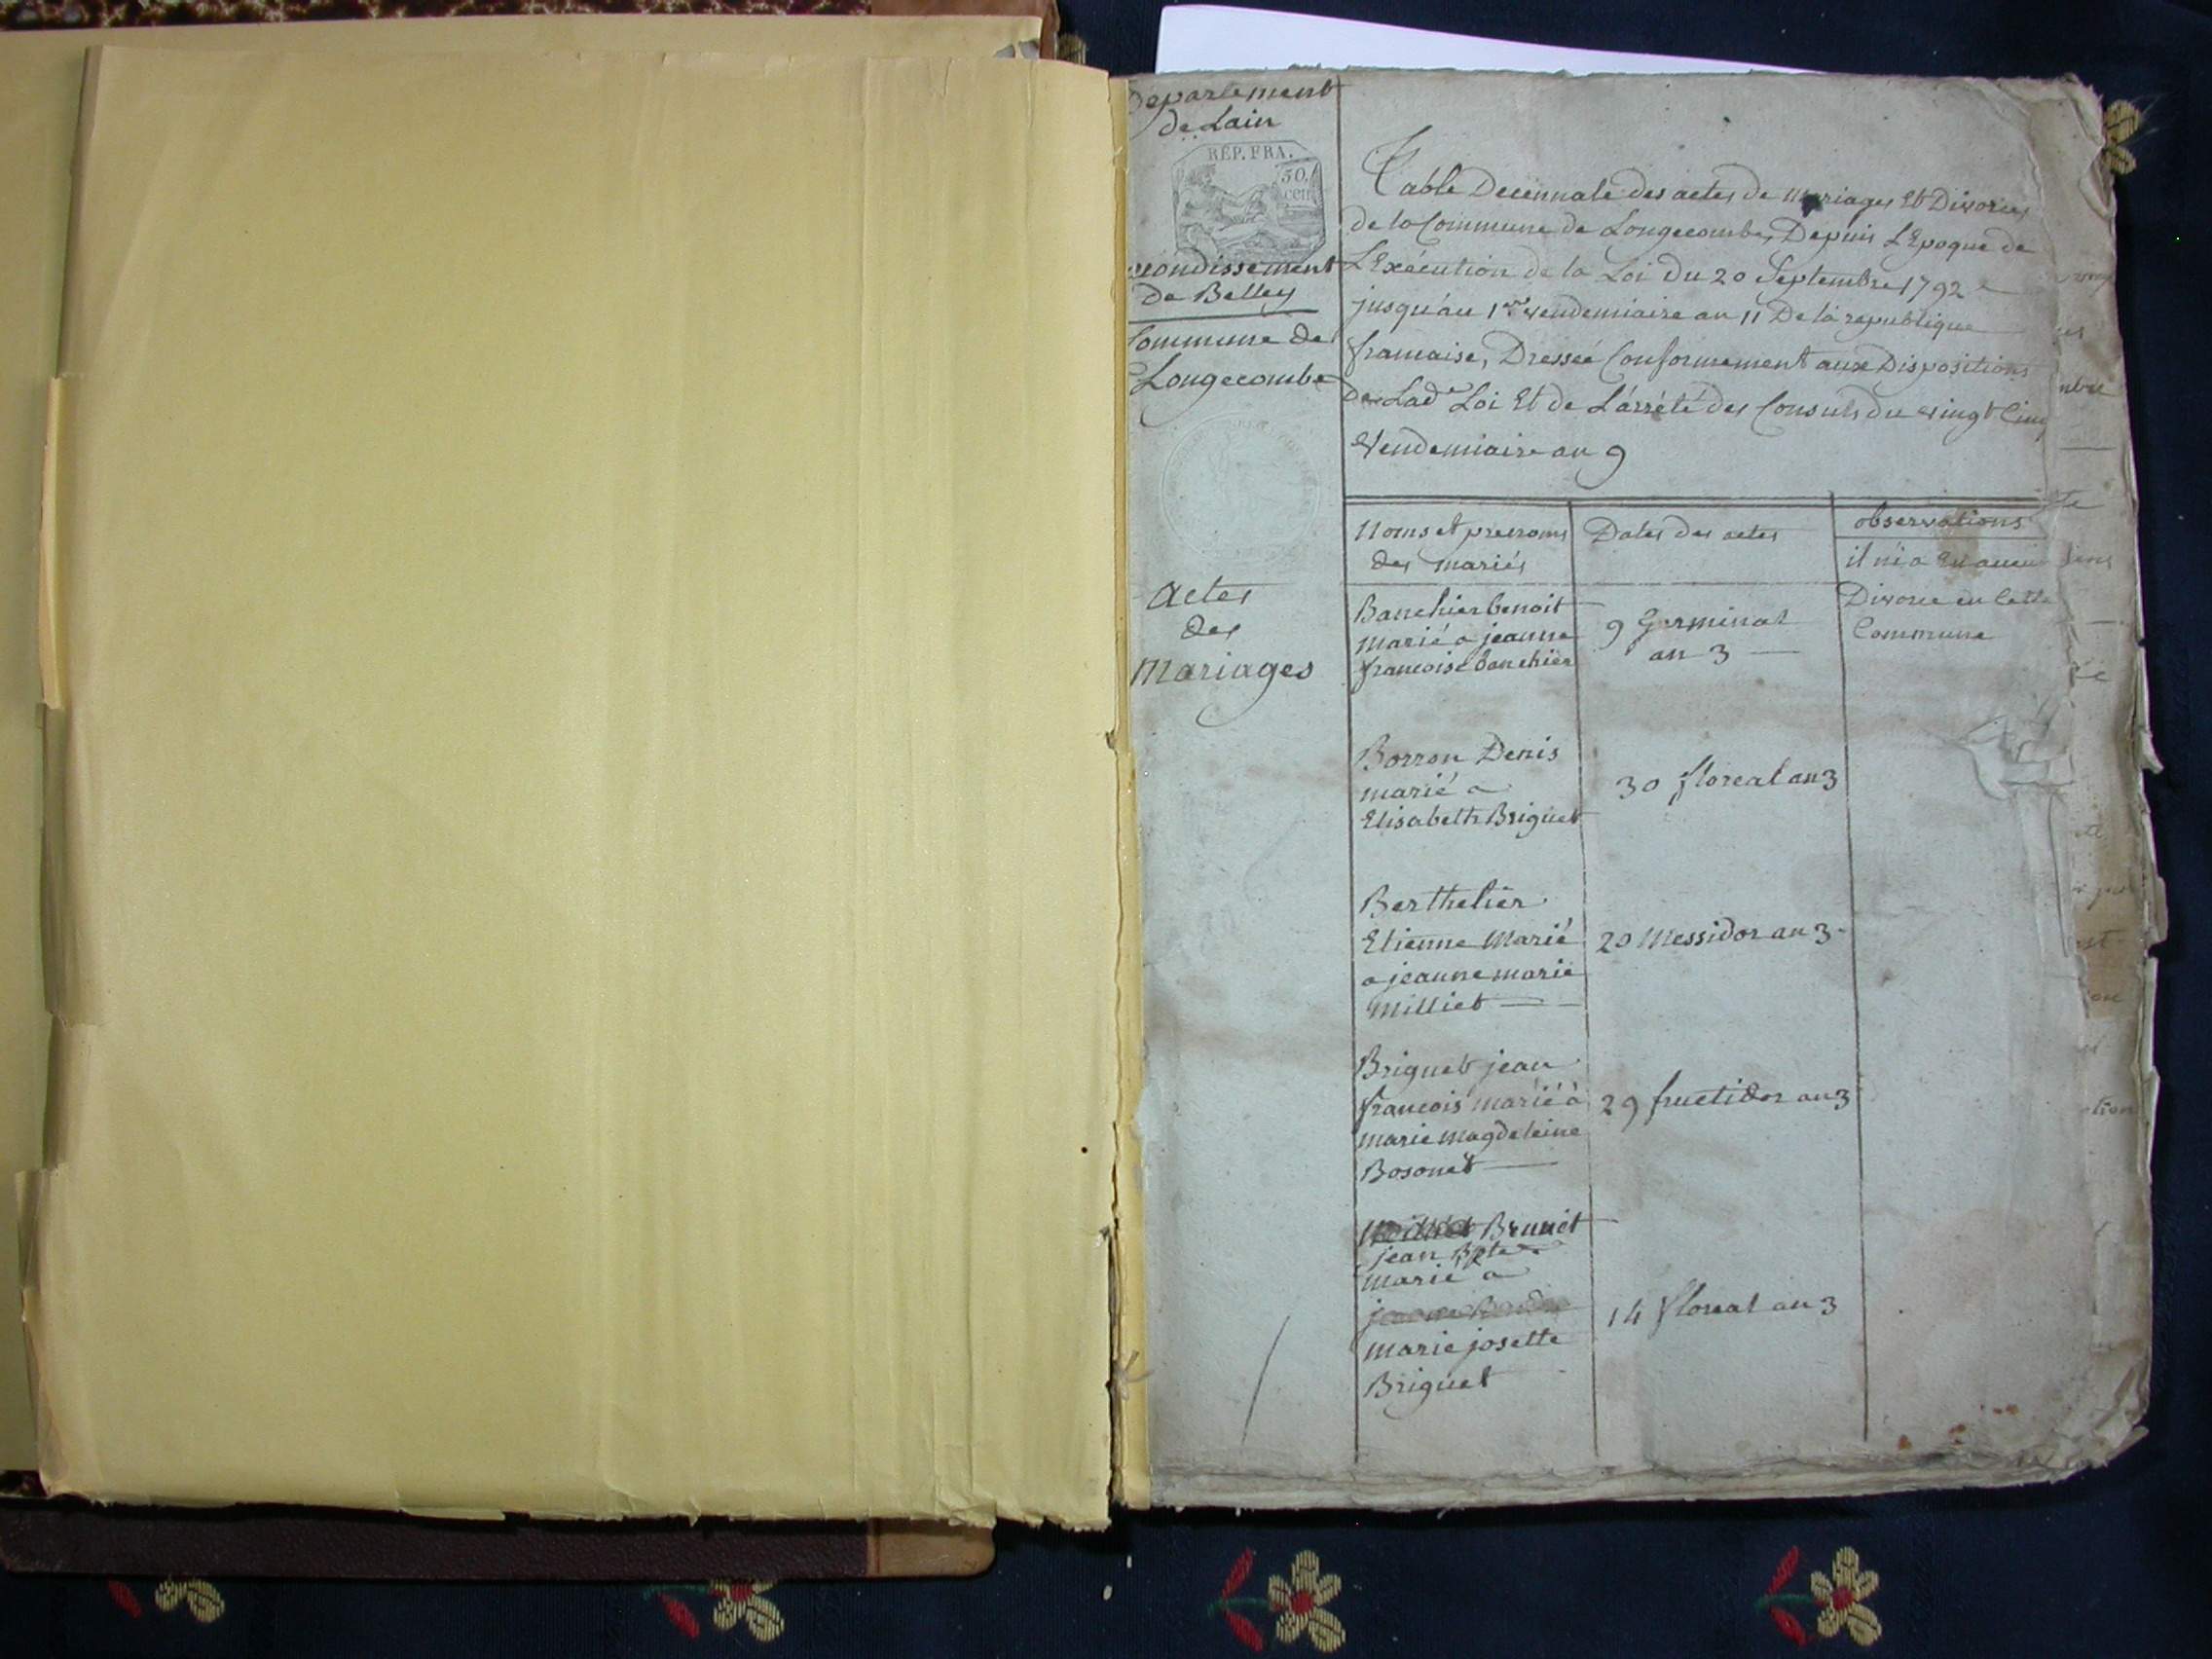 Departement
de Lain
RÉP. FRA.
50.
cen
de Belley
Commune de
Longecombe
Actes
des
Mariages
Table Decennale des actes de Mariages Et Divorces
de la Commune de Longecombe, Depuis L'Epoque de
L'Execution de la Loi Du 20 Septembre 1792
jusqu'au 1er vendemiaire an 11 De la republique
francaise, Dresseé Conformement aux Dispositions
De Lade Loi Et de L'arrété des Consuls du vingt Cinq
Vendemiaire an 9
Noms et prenoms
des mariés
Dates des actes
observations
il ni a Eu aucun
Divorce en Cette
Commune
Banchier benoit
marié a jeanne
francoise banchier
9 Germinal
an 3
Borron Denis
marié a
Elisabeth Briguet
30 floreal an 3
Berthelier
Etienne Marié
a jeanne marie
Milliet
20 Messidor an 3
Briguet jean
francois marié à
marie magdeleine
Bosonet
29 fructidor an 3
Brunet
jean Bpte
marié a
marie josette
Briguet
14 floreal an 3